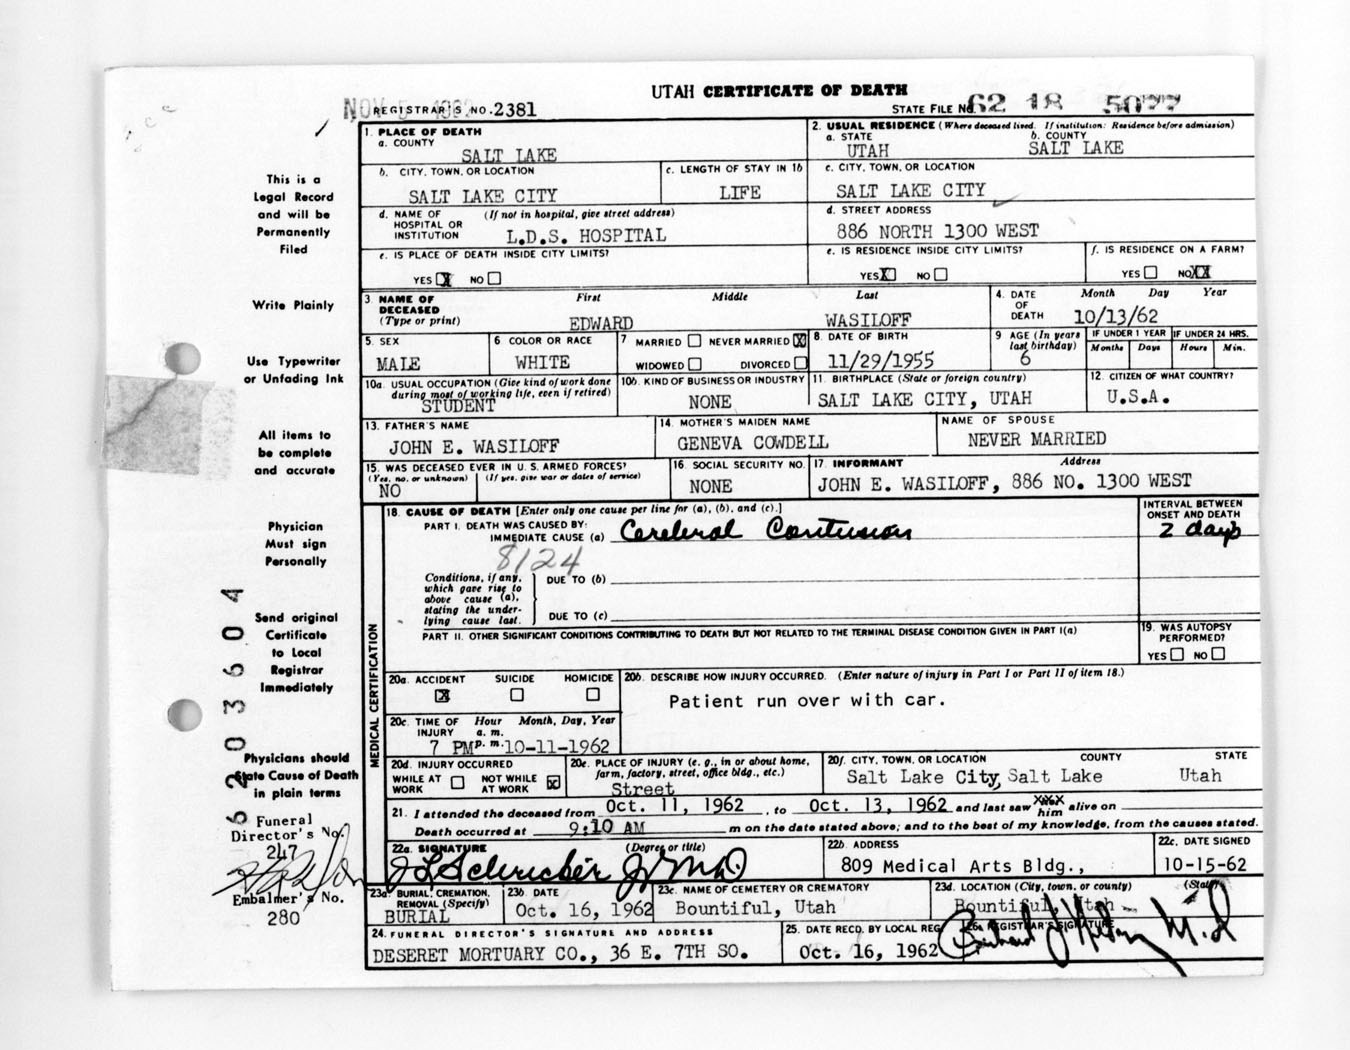 UTAH CERTIFICATE OF DEATH
NOV 5 1962 REGISTRAR'S NO. 2381
STATE FILE No. 62 18 5077
1. PLACE OF DEATH
a. COUNTY
SALT LAKE
2. USUAL RESIDENCE (Where deceased lived. If institution: Residence before admission)
a. STATE b. COUNTY
UTAH SALT LAKE
b. CITY, TOWN, OR LOCATION
SALT LAKE CITY
c. LENGTH OF STAY IN 1b
LIFE
c. CITY, TOWN, OR LOCATION
SALT LAKE CITY
d. NAME OF HOSPITAL OR INSTITUTION (If not in hospital, give street address)
L.D.S. HOSPITAL
d. STREET ADDRESS
886 NORTH 1300 WEST
e. IS PLACE OF DEATH INSIDE CITY LIMITS?
YES X NO
e. IS RESIDENCE INSIDE CITY LIMITS?
YES X NO
f. IS RESIDENCE ON A FARM?
YES NO XX
3. NAME OF DECEASED (Type or print)
First Middle Last
EDWARD WASILOFF
4. DATE OF DEATH Month Day Year
10/13/62
5. SEX
MALE
6 COLOR OR RACE
WHITE
7 MARRIED NEVER MARRIED X
WIDOWED DIVORCED
8. DATE OF BIRTH
11/29/1955
9 AGE (In years last birthday)
6
IF UNDER 1 YEAR IF UNDER 24 HRS.
Months Days Hours Min.
10a. USUAL OCCUPATION (Give kind of work done during most of working life, even if retired)
STUDENT
10b. KIND OF BUSINESS OR INDUSTRY
NONE
11. BIRTHPLACE (State or foreign country)
SALT LAKE CITY, UTAH
12. CITIZEN OF WHAT COUNTRY?
U.S.A.
13. FATHER'S NAME
JOHN E. WASILOFF
14. MOTHER'S MAIDEN NAME
GENEVA COWDELL
NAME OF SPOUSE
NEVER MARRIED
15. WAS DECEASED EVER IN U. S. ARMED FORCES?
(Yes, no, or unknown) (If yes, give war or dates of service)
NO
16. SOCIAL SECURITY NO.
NONE
17. INFORMANT Address
JOHN E. WASILOFF, 886 NO. 1300 WEST
MEDICAL CERTIFICATION
18. CAUSE OF DEATH [Enter only one cause per line for (a), (b), and (c).]
PART I. DEATH WAS CAUSED BY:
IMMEDIATE CAUSE (a) Cerebral Contusion
INTERVAL BETWEEN ONSET AND DEATH
2 days
8124
Conditions, if any, which gave rise to above cause (a), stating the underlying cause last.
DUE TO (b)
DUE TO (c)
PART II. OTHER SIGNIFICANT CONDITIONS CONTRIBUTING TO DEATH BUT NOT RELATED TO THE TERMINAL DISEASE CONDITION GIVEN IN PART I(a)
19. WAS AUTOPSY PERFORMED?
YES NO
20a. ACCIDENT SUICIDE HOMICIDE
X
20b. DESCRIBE HOW INJURY OCCURRED. (Enter nature of injury in Part I or Part II of item 18.)
Patient run over with car.
20c. TIME OF INJURY Hour Month, Day, Year
a. m.
7 PM p. m. 10-11-1962
20d. INJURY OCCURRED
WHILE AT WORK NOT WHILE AT WORK X
20e. PLACE OF INJURY (e. g., in or about home, farm, factory, street, office bldg., etc.)
Street
20f. CITY, TOWN, OR LOCATION COUNTY STATE
Salt Lake City, Salt Lake Utah
21. I attended the deceased from Oct. 11, 1962, to Oct. 13, 1962 and last saw him alive on
Death occurred at 9:10 AM m on the date stated above; and to the best of my knowledge, from the causes stated.
22a. SIGNATURE (Degree or title)
22b. ADDRESS
809 Medical Arts Bldg.,
22c. DATE SIGNED
10-15-62
23a. BURIAL, CREMATION, REMOVAL (Specify)
BURIAL
23b. DATE
Oct. 16, 1962
23c. NAME OF CEMETERY OR CREMATORY
Bountiful, Utah
23d. LOCATION (City, town, or county) (State)
Bountiful, Utah
24. FUNERAL DIRECTOR'S SIGNATURE AND ADDRESS
DESERET MORTUARY CO., 36 E. 7TH SO.
25. DATE RECD. BY LOCAL REG.
Oct. 16, 1962
26. REGISTRAR'S SIGNATURE
M.D.
This is a
Legal Record
and will be
Permanently
Filed
Write Plainly
Use Typewriter
or Unfading Ink
All items to
be complete
and accurate
Physician
Must sign
Personally
Send original
Certificate
to Local
Registrar
Immediately
Physicians should
State Cause of Death
in plain terms
Funeral
Director's No.
247
Embalmer's No.
280